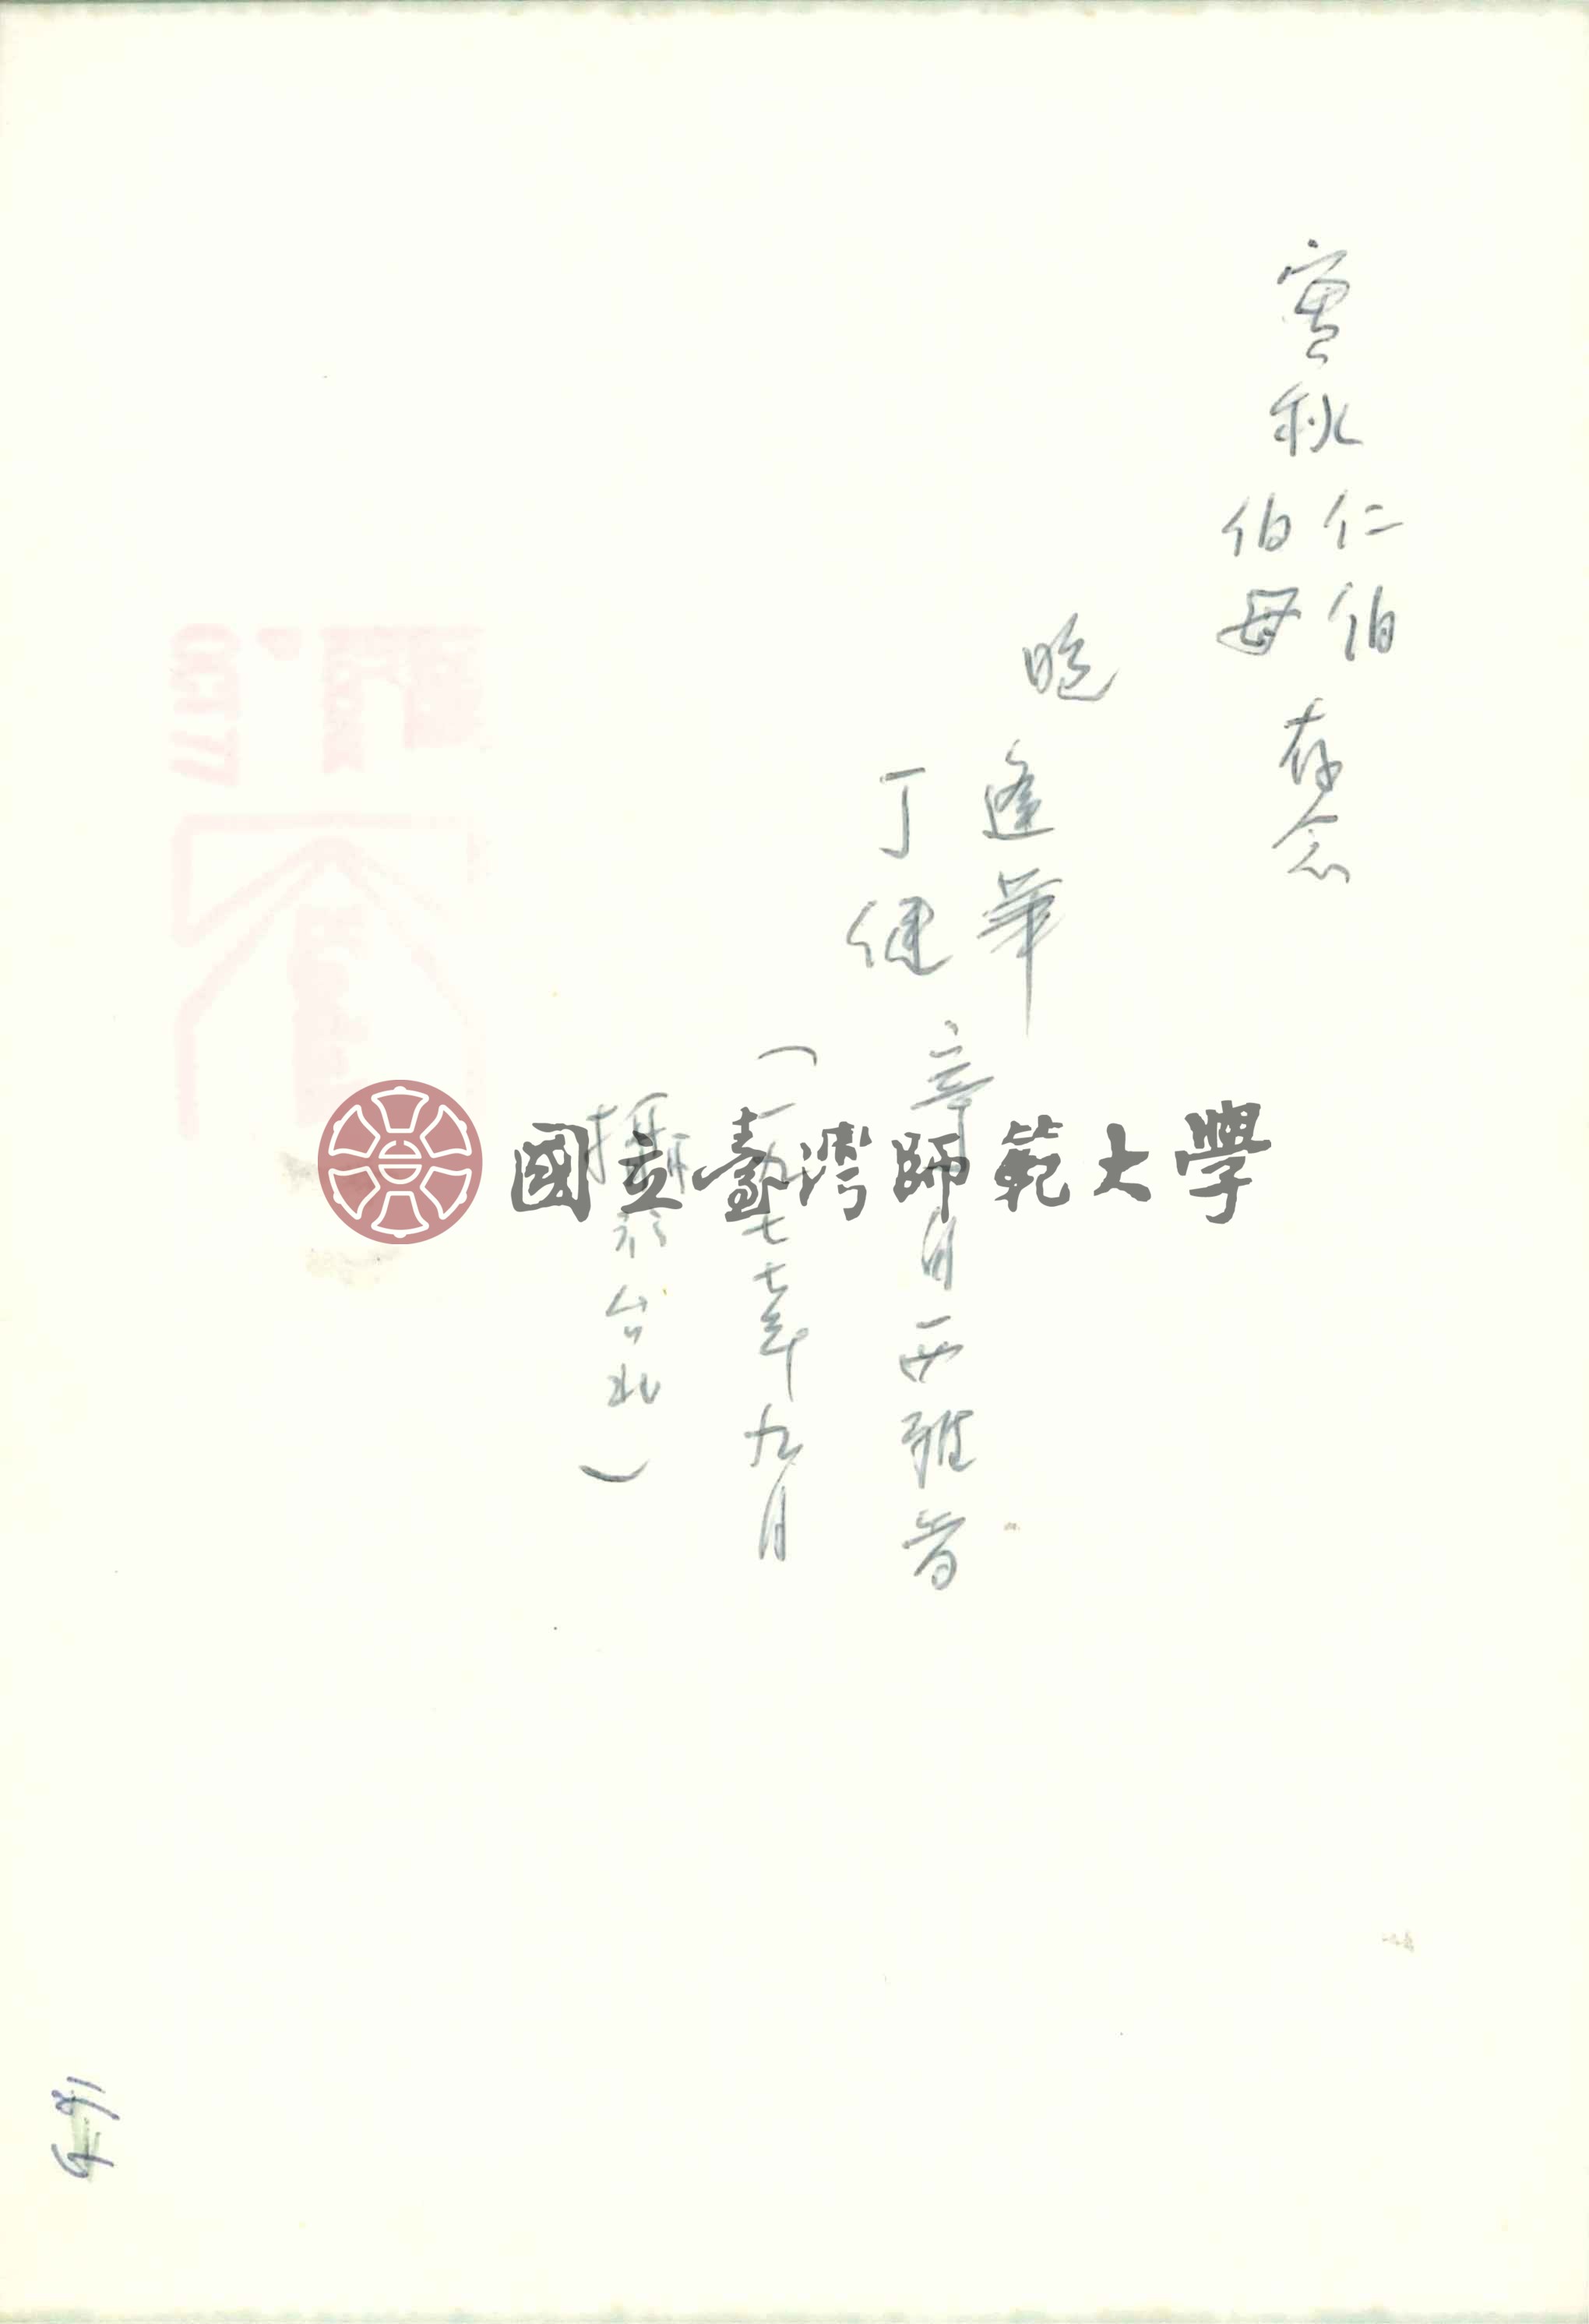 實秋
仁伯
伯母
存念
晚
逢華
丁健
西雅
(一九七七年九月
攝於台北)
國立臺灣師範大學